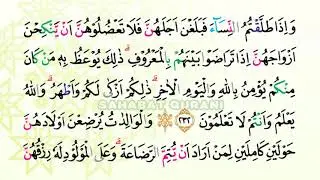 وَاِذَا طَلَّقْتُمُ النِّسَاۤءَ فَبَلَغْنَ اَجَلَهُنَّ فَلَا تَعْضُلُوْهُنَّ اَنْ يَّنْكِحْنَ
اَزْوَاجَهُنَّ اِذَا تَرَاضَوْا بَيْنَهُمْ بِالْمَعْرُوْفِۗ ذٰلِكَ يُوْعَظُ بِهٖ مَنْ كَانَ
مِنْكُمْ يُؤْمِنُ بِاللّٰهِ وَالْيَوْمِ الْاٰخِرِۗ ذٰلِكُمْ اَزْكٰى لَكُمْ وَاَطْهَرُۗ وَاللّٰهُ
SAHABAT QURANI
يَعْلَمُ وَاَنْتُمْ لَا تَعْلَمُوْنَ ٢٣٢ وَالْوَالِدٰتُ يُرْضِعْنَ اَوْلَادَهُنَّ
حَوْلَيْنِ كَامِلَيْنِ لِمَنْ اَرَادَ اَنْ يُّتِمَّ الرَّضَاعَةَۗ وَعَلَى الْمَوْلُوْدِ لَهٗ رِزْقُهُنَّ